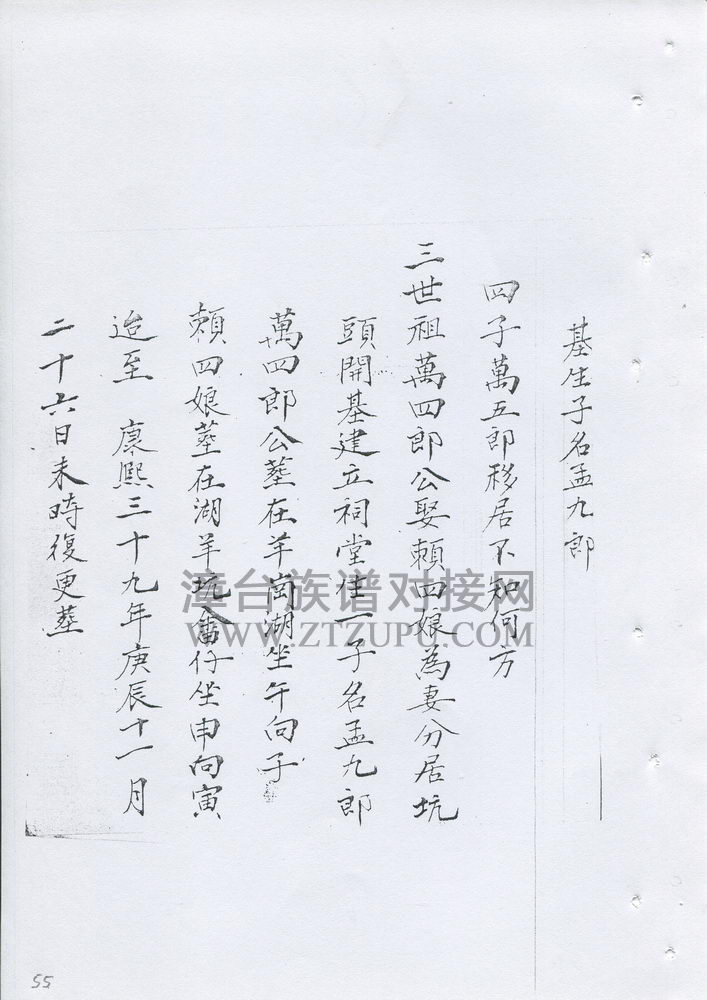 基生子名孟九郎
四子萬五郎移居不知何方
三世祖萬四郎公娶賴四娘為妻分居坑
頭開基建立祠堂住一子名孟九郎
萬四郎公塟在羊崗湖坐午向子
賴四娘塟在湖羊坑畬仔坐申向寅
迨至 康熙三十九年庚辰十一月
二十六日未時復更塟
漳台族谱对接网
WWW.ZTZUPU.COM
55